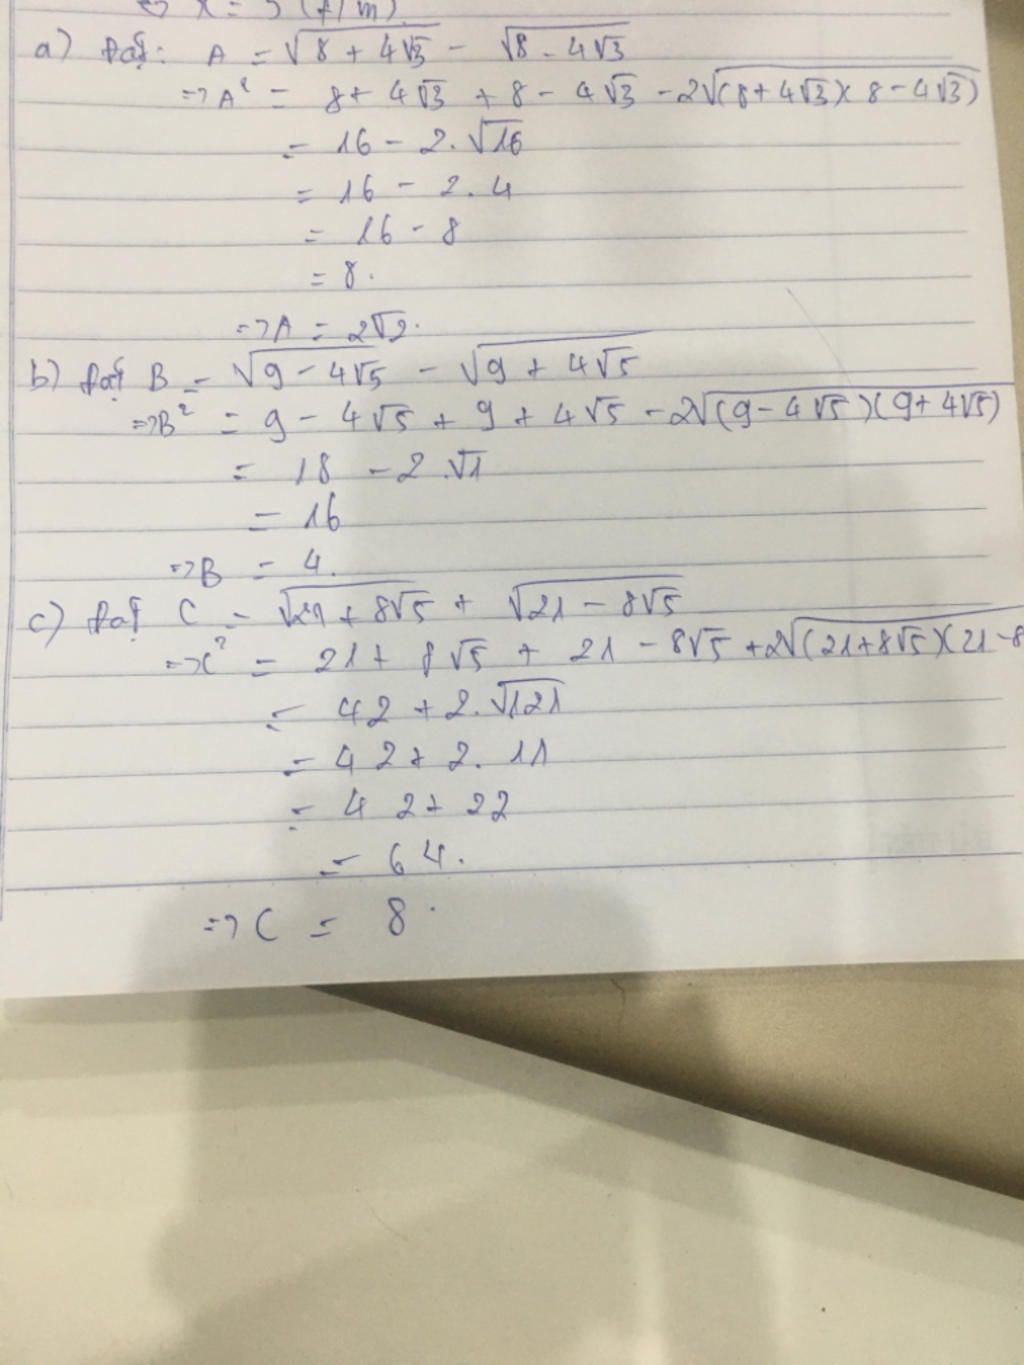 ⇔ x = 5 (t/m)
a) Đặt: A = √(8 + 4√3) - √(8 - 4√3)
=> A² = 8 + 4√3 + 8 - 4√3 - 2√((8 + 4√3)(8 - 4√3))
= 16 - 2.√16
= 16 - 2.4
= 16 - 8
= 8.
=> A = 2√2.
b) Đặt B = √(9 - 4√5) - √(9 + 4√5)
=> B² = 9 - 4√5 + 9 + 4√5 - 2√((9 - 4√5)(9 + 4√5))
= 18 - 2.√1
= 16
=> B = 4.
c) Đặt C = √(21 + 8√5) + √(21 - 8√5)
=> C² = 21 + 8√5 + 21 - 8√5 + 2√((21 + 8√5)(21 - 8
= 42 + 2.√121
= 42 + 2.11
= 42 + 22
= 64.
=> C = 8.